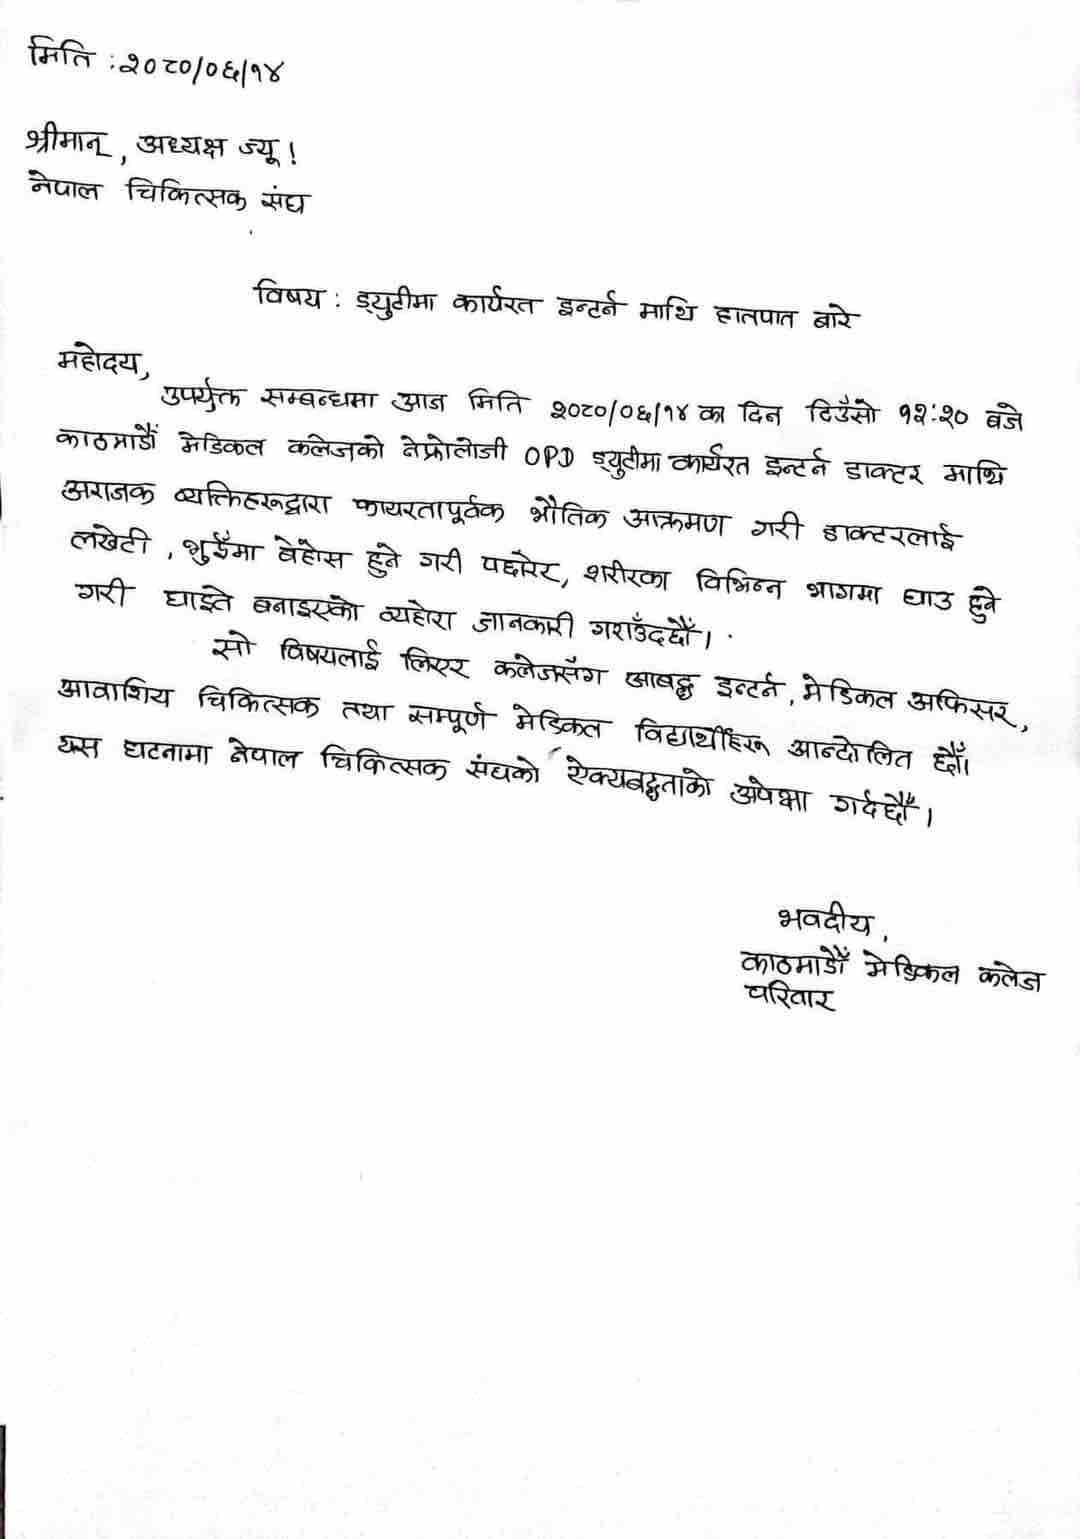 मिति : २०८०/०६/१४
श्रीमान्, अध्यक्ष ज्यू !
नेपाल चिकित्सक संघ
विषय : ड्युटीमा कार्यरत इन्टर्न माथि हातपात बारे
महोदय,
उपर्युक्त सम्बन्धमा आज मिति २०८०/०६/१४ का दिन दिउँसो १२:२० बजे
काठमाडौं मेडिकल कलेजको नेफ्रोलोजी OPD ड्युटीमा कार्यरत इन्टर्न डाक्टर माथि
अराजक व्यक्तिहरूद्वारा कायरतापूर्वक भौतिक आक्रमण गरी डाक्टरलाई
लखेटी , भुईँमा बेहोस हुने गरी पछारेर, शरीरका विभिन्न भागमा घाउ हुने
गरी घाइते बनाइएको व्यहोरा जानकारी गराउँदछौँ।
सो विषयलाई लिएर कलेजसँग आबद्ध इन्टर्न, मेडिकल अफिसर,
आवाशिय चिकित्सक तथा सम्पूर्ण मेडिकल विद्यार्थीहरू आन्दोलित छौँ।
यस घटनामा नेपाल चिकित्सक संघको ऐक्यबद्धताको अपेक्षा गर्दछौँ।
भवदीय,
काठमाडौँ मेडिकल कलेज
परिवार